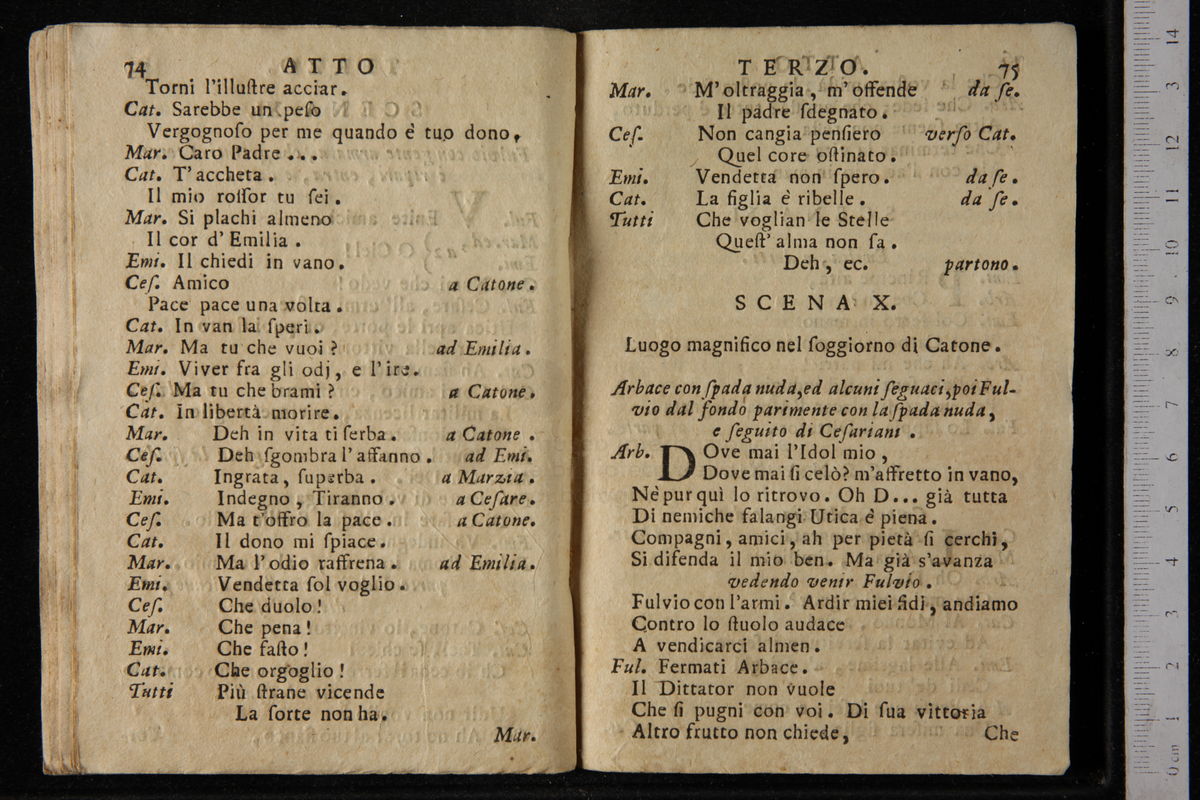 74 ATTO
Torni l'illuſtre acciar.
Cat. Sarebbe un peſo
Vergognoſo per me quando è tuo dono,
Mar. Caro Padre ...
Cat. T'accheta.
Il mio roſſor tu ſei.
Mar. Si plachi almeno
Il cor d'Emilia.
Emi. Il chiedi in vano.
Ceſ. Amico a Catone.
Pace pace una volta.
Cat. In van la ſperi.
Mar. Ma tu che vuoi? ad Emilia.
Emi. Viver fra gli odj, e l'ire.
Ceſ. Ma tu che brami? a Catone.
Cat. In libertà morire.
Mar. Deh in vita ti ſerba. a Catone.
Ceſ. Deh ſgombra l'affanno. ad Emi.
Cat. Ingrata, ſuperba. a Marzia.
Emi. Indegno, Tiranno. a Ceſare.
Ceſ. Ma t'offro la pace. a Catone.
Cat. Il dono mi ſpiace.
Mar. Ma l'odio raffrena. ad Emilia.
Emi. Vendetta ſol voglio.
Ceſ. Che duolo!
Mar. Che pena!
Emi. Che faſto!
Cat. Che orgoglio!
Tutti Più ſtrane vicende
La ſorte non ha.
Mar.
TERZO. 75
Mar. M'oltraggia, m'offende da ſe.
Il padre ſdegnato.
Ceſ. Non cangia penſiero verſo Cat.
Quel core oſtinato.
Emi. Vendetta non ſpero. da ſe.
Cat. La figlia è ribelle. da ſe.
Tutti Che voglian le Stelle
Queſt'alma non ſa.
Deh, ec. partono.
SCENA X.
Luogo magnifico nel ſoggiorno di Catone.
Arbace con ſpada nuda, ed alcuni ſeguaci, poi Ful-
vio dal fondo parimente con la ſpada nuda,
e ſeguito di Ceſariani.
Arb. DOve mai l'Idol mio,
Dove mai ſi celò? m'affretto in vano,
Nè pur quì lo ritrovo. Oh D... già tutta
Di nemiche falangi Utica è piena.
Compagni, amici, ah per pietà ſi cerchi,
Si difenda il mio ben. Ma già s'avanza
vedendo venir Fulvio.
Fulvio con l'armi. Ardir miei fidi, andiamo
Contro lo ſtuolo audace
A vendicarci almen.
Ful. Fermati Arbace.
Il Dittator non vuole
Che ſi pugni con voi. Di ſua vittoria
Altro frutto non chiede,
Che
14
13
12
11
10
9
8
7
6
5
4
3
2
1
0 cm